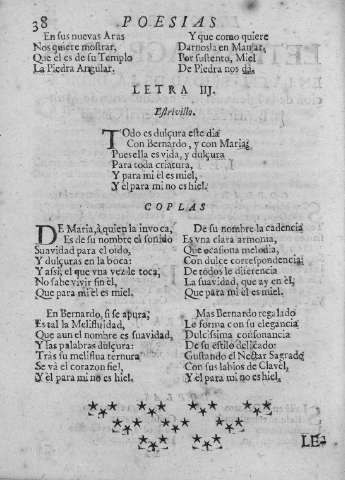 38 POESIAS
En sus nuevas Aras
Nos quiere mostrar,
Que el es de su Templo
La Piedra Angular.
Y que como quiere
Darnosla en Manjar,
Por sustento, Miel
De Piedra nos dà.
LETRA IIJ.
Estrivillo.
TOdo es dulçura este dia
Con Bernardo, y con Maria;
Pues ella es vida, y dulçura
Para toda criatura,
Y para mi èl es miel,
Y èl para mi no es hiel.
COPLAS
DE Maria, à quien la invoca,
Es de su nombre el sonido
Suavidad para el oìdo,
Y dulçuras en la boca:
Y assi, el que vna vez le toca,
No sabe vivir sin èl,
Que para mi èl es miel.
En Bernardo, si se apura;
Es tal la Melifluidad,
Que aun el nombre es suavidad,
Y las palabras dulçura:
Tras su meliflua ternura
Se và el corazon fiel,
Y èl para mi no es hiel.
De su nombre la cadencia
Es vna clara armonia,
Que ocasiona melodia,
Con dulce correspondencia:
De todos le diferencia
La suavidad, que ay en èl,
Que para mi èl es miel.
Mas Bernardo regalado
Le forma con su elegancia
Dulcissima consonancia
De su estilo delicado:
Gustando el Nectar Sagrado
Con sus labios de Clavel,
Y èl para mi no es hiel.
LE-